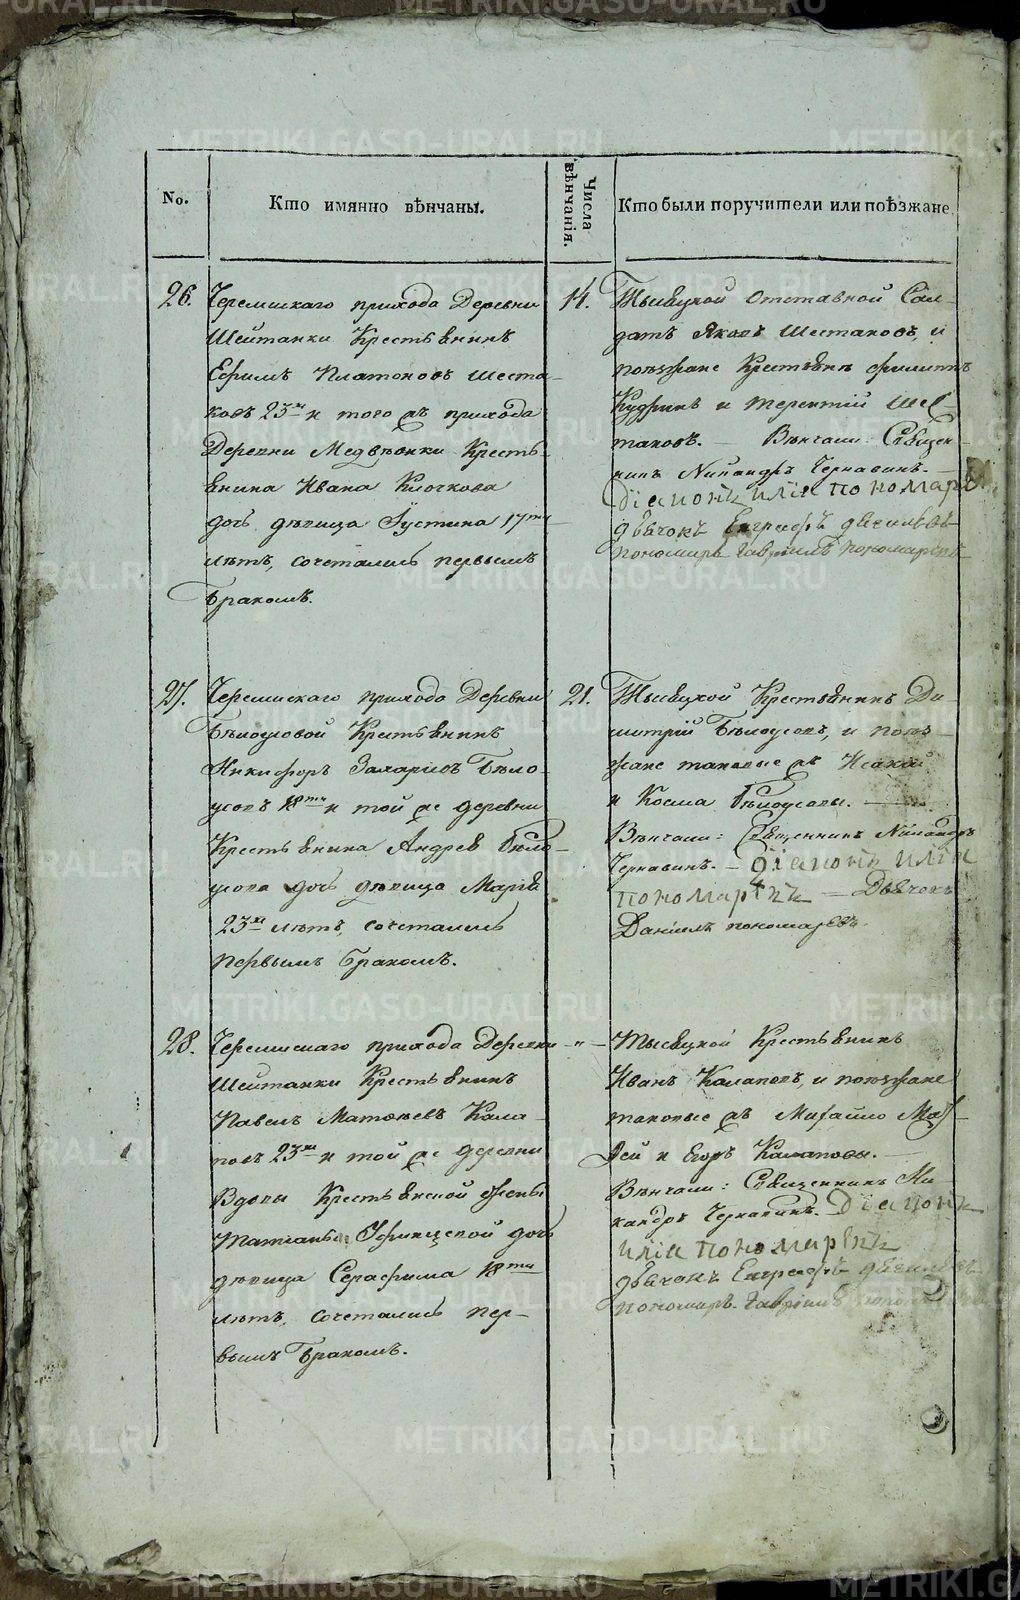 METRIKI.GASO-URAL.RU
No.
Кто имянно вѣнчаны.
Числа вѣнчанія.
Кто были поручители или поѣзжане.
26.
Черемискаго прихода Деревни
Шейтанки Крестьянинъ
Ефимъ Платоновъ Шеста-
ковъ 23хъ и того жъ прихода
Деревни Медвѣдки Кресть-
янина Ивана Клочкова
дочь дѣвица Іустина 17ти
лѣтъ, сочетались первымъ
бракомъ.
14.
Тысяцкой Отставной Сол-
датъ Яковъ Шестаковъ, и
поѣзжане Крестьяне Филиппъ
Кудринъ и Терентій Шес
таковъ. — Вѣнчали: Священ-
никъ Никандръ Чернавинъ. —
діаконъ илiа пономаревъ
дьячокъ Евграфъ
пономарь Гавріилъ пономаревъ
27.
Черемискаго прихода Деревни
Бѣлоусовой Крестьянинъ
Никифоръ Захаровъ Бѣло-
усовъ 18ти и той же деревни
Крестьянина Андрея Бѣло-
усова дочь дѣвица Марія
23хъ лѣтъ, сочетались
первымъ бракомъ.
21.
Тысяцкой Крестьянинъ Ди-
митрій Бѣлоусовъ, и поѣз-
жане таковые жъ Исакій
и Косма Бѣлоусовы. —
Вѣнчали: Священникъ Никандръ
Чернавинъ. — діаконъ илiа
пономаревъ — Дьячокъ
Даніилъ пономаревъ
28.
Черемискаго прихода Деревни
Шейтанки Крестьянинъ
Павелъ Матвѣевъ Кала-
повъ 23хъ и той же деревни
Вдовы Крестьянской жены
Татьяны дочь
дѣвица Серафима 18ти
лѣтъ, сочетались пер-
вымъ бракомъ.
— „ —
Тысяцкой Крестьянинъ
Иванъ Калаповъ, и поѣзжане
таковые жъ Михайло Маѳ-
ѳей и Егоръ Калаповы. —
Вѣнчали: Священникъ Ни-
кандръ Чернавинъ. Діаконъ
илiа пономаревъ
дьячокъ Евграфъ
пономарь Гавріилъ